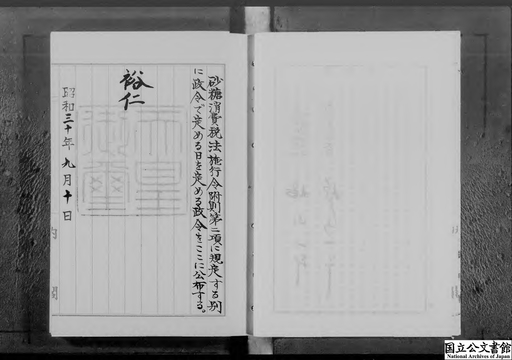 砂糖消費税法施行令附則第二項に規定する別
に政令で定める日を定める政令をここに公布する。
裕仁
天皇御璽
昭和三十年九月十日
内閣
国立公文書館
National Archives of Japan